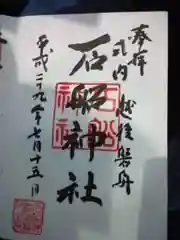 奉拝
式内
越後磐舟
石船神社
平成二十九年七月十五日